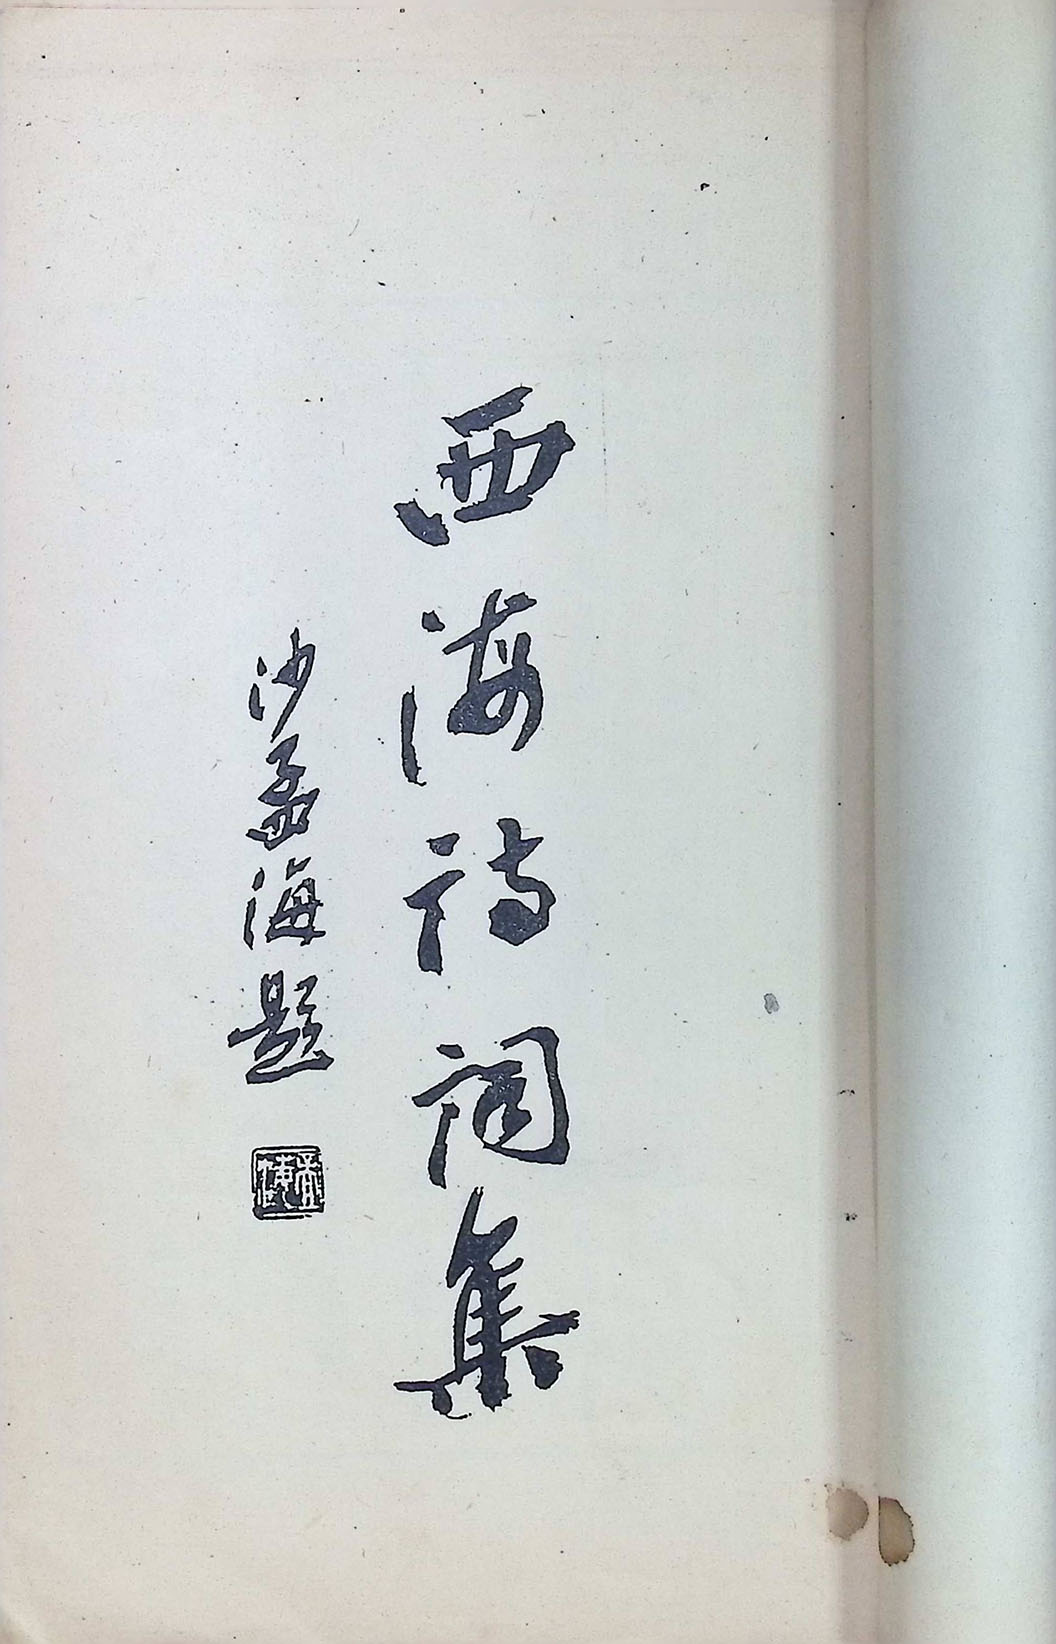 西海詩詞集
沙孟海題